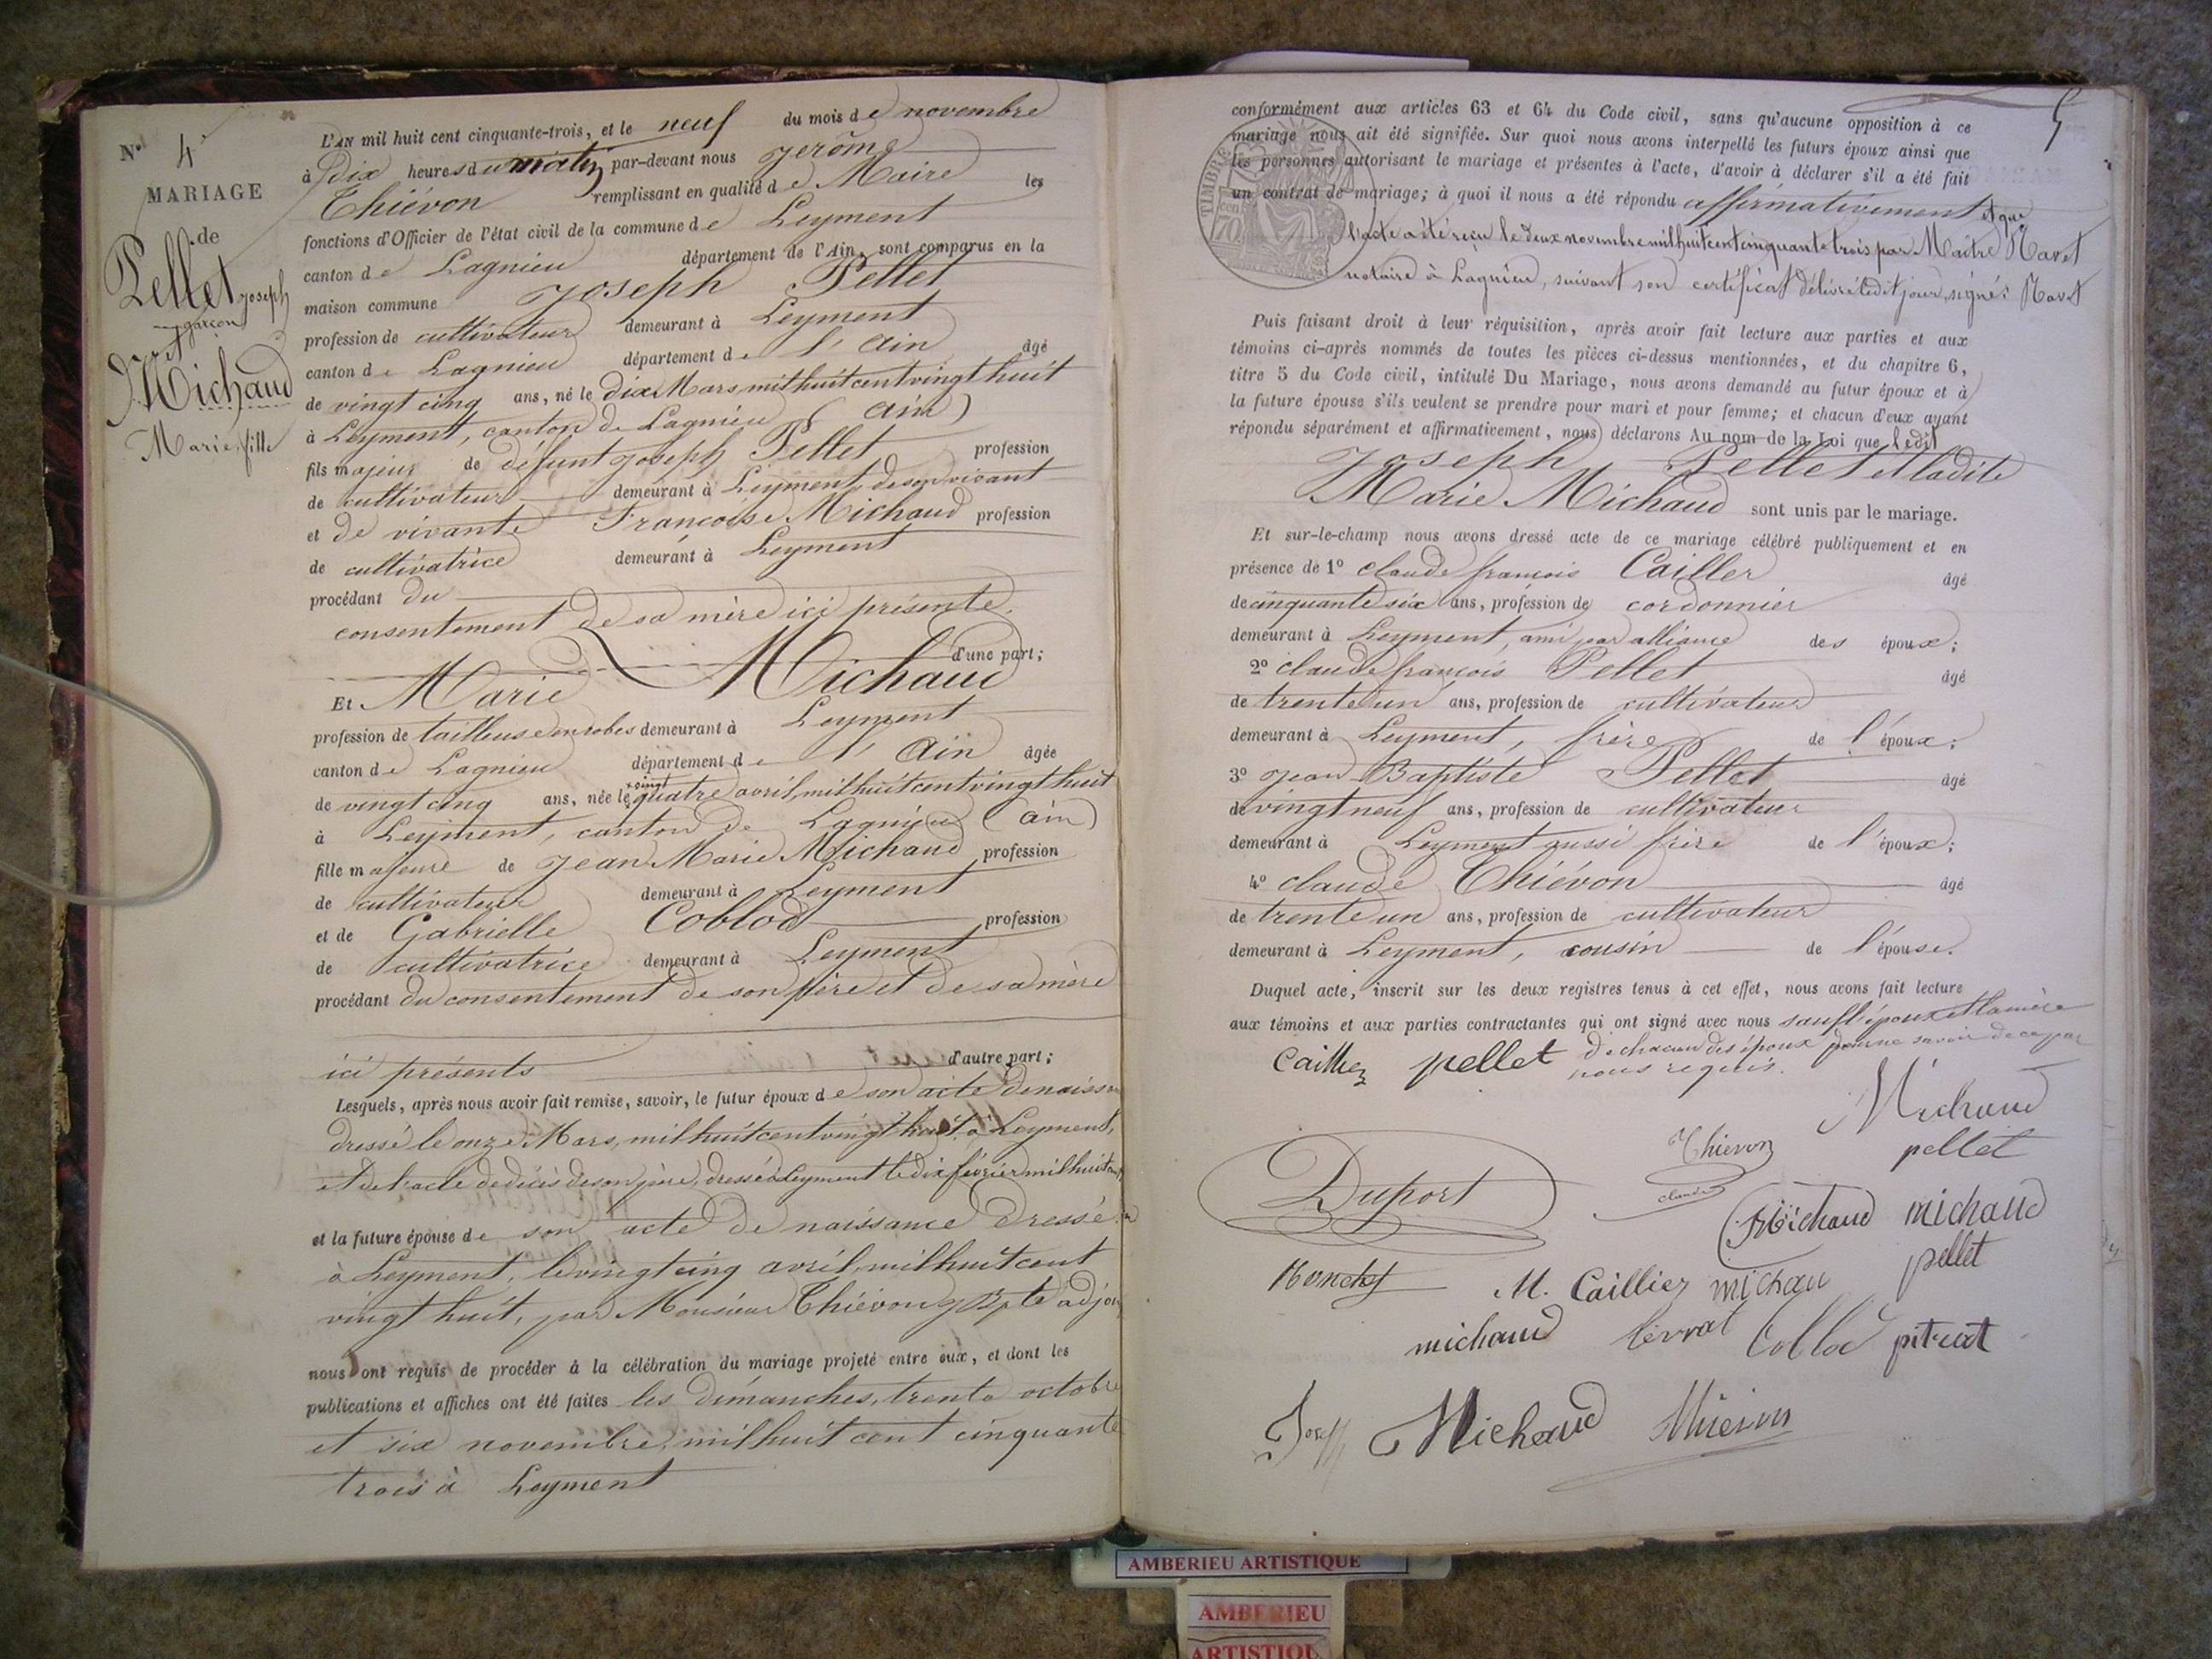 N.º 4
MARIAGE
de
Pellet Joseph
garçon
et
Michaud
Marie, fille
L'AN mil huit cent cinquante-trois, et le neuf du mois de novembre
à dix heures du matin par-devant nous Jerôme
Thiévon remplissant en qualité de Maire les
fonctions d'Officier de l'état civil de la commune de Leyment
canton de Lagnieu département de l'Ain, sont comparus en la
maison commune Joseph Pellet
profession de cultivateur demeurant à Leyment
canton de Lagnieu département de l'Ain âgé
de vingt cinq ans, né le dix Mars mil huit cent vingt huit
à Leyment, canton de Lagnieu (Ain)
fils majeur de défunt Joseph Pellet profession
de cultivateur demeurant à Leyment, de son vivant
et de vivante Françoise Michaud profession
de cultivatrice demeurant à Leyment
procédant du
consentement de sa mère ici présente.
d'une part;
Et Marie Michaud
profession de tailleuse en robes demeurant à Leyment
canton de Lagnieu département de l'Ain âgée
de vingt cinq ans, née le vingt quatre avril, mil huit cent vingt huit
à Leyment, canton de Lagnieu (ain)
fille majeure de Jean Marie Michaud profession
de cultivateur demeurant à Leyment
et de Gabrielle Coblod profession
de cultivatrice demeurant à Leyment
procédant du consentement de son père et de sa mère
ici présents d'autre part;
Lesquels, après nous avoir fait remise, savoir, le futur époux de son acte de naissance
dressé le onze Mars, mil huit cent vingt huit, à Leyment,
et de l'acte de décès de son père, dressé à Leyment le dix février mil huit cent
et la future épouse de son acte de naissance dressé
à Leyment, le vingt cinq avril, mil huit cent
vingt huit, par Monsieur Thiévon J Bpte adjoint
nous ont requis de procéder à la célébration du mariage projeté entre eux, et dont les
publications et affiches ont été faites les dimanches, trente octobre
et six novembre, mil huit cent cinquante
trois à Leyment
5
conformément aux articles 63 et 64 du Code civil, sans qu'aucune opposition à ce
mariage nous ait été signifiée. Sur quoi nous avons interpellé les futurs époux ainsi que
les personnes autorisant le mariage et présentes à l'acte, d'avoir à déclarer s'il a été fait
un contrat de mariage; à quoi il nous a été répondu affirmativement et que
l'acte a été reçu le deux novembre mil huit cent cinquante trois par Maître Navet
notaire à Lagnieu, suivant son certificat délivré ledit jour, signé: Navet
TIMBRE
70
Puis faisant droit à leur réquisition, après avoir fait lecture aux parties et aux
témoins ci-après nommés de toutes les pièces ci-dessus mentionnées, et du chapitre 6,
titre 5 du Code civil, intitulé Du Mariage, nous avons demandé au futur époux et à
la future épouse s'ils veulent se prendre pour mari et pour femme; et chacun d'eux ayant
répondu séparément et affirmativement, nous déclarons Au nom de la Loi que ledit
Joseph Pellet et ladite
Marie Michaud sont unis par le mariage.
Et sur-le-champ nous avons dressé acte de ce mariage célébré publiquement et en
présence de 1º claude françois Cailler âgé
de cinquante six ans, profession de cordonnier
demeurant à Leyment, ami par alliance des époux;
2º claude françois Pellet âgé
de trente un ans, profession de cultivateur
demeurant à Leyment, frère de l'époux;
3º Jean Baptiste Pellet âgé
de vingt neuf ans, profession de cultivateur
demeurant à Leyment aussi frère de l'époux;
4º claude Thiévon âgé
de trente un ans, profession de cultivateur
demeurant à Leyment, cousin de l'épouse.
Duquel acte, inscrit sur les deux registres tenus à cet effet, nous avons fait lecture
aux témoins et aux parties contractantes qui ont signé avec nous sauf l'époux et la mère
de chacun des époux pour ne savoir de ce par
nous requis.
Caillier pellet
Michaud
Thievon pellet
claude
Duport
Michaud michaud
M. Caillier michau pellet
michaud pitrat
Michaud Thiévon
AMBERIEU ARTISTIQUE
AMBERIEU
ARTISTIQU